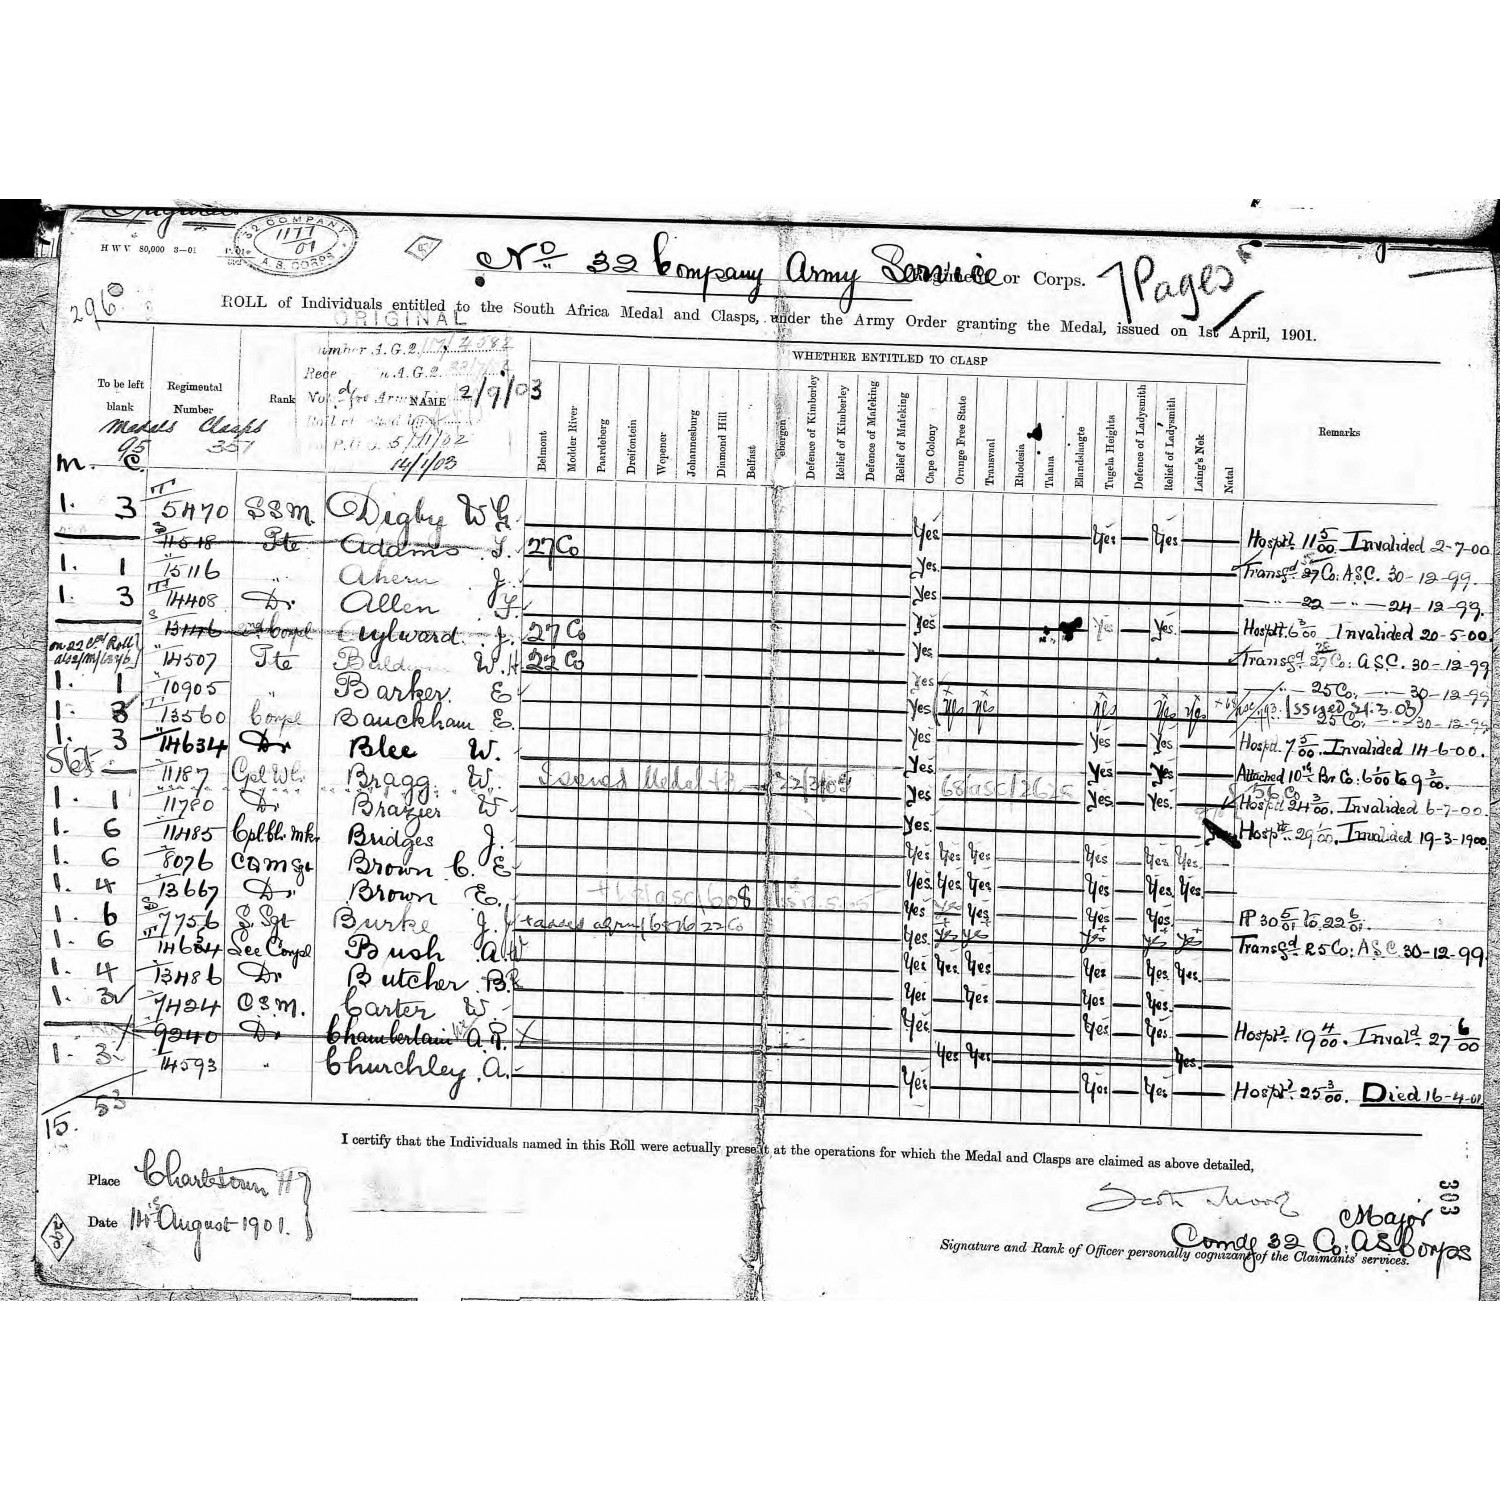 H W V 80,000 3—01
32 COMPANY
1177/01
A. S. CORPS
No. 32 Company Army Service Regiment or Corps.
7 Pages
296
ROLL of Individuals entitled to the South Africa Medal and Clasps, under the Army Order granting the Medal, issued on 1st April, 1901.
ORIGINAL
WHETHER ENTITLED TO CLASP
To be left blank
Regimental Number
Rank
NAME
2/9/03
14/1/03
Medals Clasps
95 357
M. C.
Belmont
Modder River
Paardeberg
Dreifontein
Wepener
Johannesburg
Diamond Hill
Belfast
Defence of Kimberley
Relief of Kimberley
Defence of Mafeking
Relief of Mafeking
Cape Colony
Orange Free State
Transvaal
Rhodesia
Talana
Elandslaagte
Tugela Heights
Defence of Ladysmith
Relief of Ladysmith
Laing's Nek
Natal
Remarks
1. 3 5470 S.S.M. Digby W G. Yes Yes Yes Hospl. 11 5/00 Invalided 2-7-00
11518 Pte Adams 27 Co Yes. Transfd. 27 Co: A.S.C. 30-12-99.
1. 1 15116 " Ahern J. Yes — 22 — " — 24-12-99.
1. 3 14408 Dr Allen Yes Yes Yes. Hospl. 6 3/00 Invalided 20-5-00.
13146 2nd Corpl Aylward J. 27 Co Yes. Transfd. 27 Co: A.S.C. 30-12-99
on 22 Coy Roll
14507 Pte W. H 22 Co Yes 25 Co. — 30-12-99
1. 1 10905 " Barker. E Yes Yes Yes Yes Yes Yes Issued 21.3.03
25 Co. — 30-12-99
1. 3 13560 Corpl Bauckham E. Yes Yes Yes. Hospl. 7 5/00. Invalided 14-6-00.
1. 3 14634 Dr Blee W. Yes Yes Yes. Attached 10th Br. Co. 6 1/00 to 9 3/00.
11187 Cpl Wh. Bragg W. Issued Medal Yes 68/asc/2625 Yes Yes. Hospd 24 3/00. Invalided 6-7-00.
1. 1 11780 Dr Brazier W Yes. Hospl. 29 1/00. Invalided 19-3-1900
1. 6 11485 Cpl. Bridges J. Yes Yes Yes Yes Yes Yes
1. 6 8076 CQMSgt Brown C. E Yes Yes Yes Yes Yes Yes.
1. 4 13667 Dr Brown E. Yes Yes Yes. Yes Yes. FP 30 5/01 to 22 6/01.
1. 6 7756 S. Sgt Burke Yes. Yes Yes Yes Yes Yes Transfd 25 Co: A.S.C. 30-12-99
1. 6 14634 Corpl Bush A W Yes Yes Yes Yes Yes Yes.
1. 4 13486 Dr Butcher B. Yes Yes Yes Yes.
1. 3 7424 C.S.M. Carter W. Yes Yes Yes. Hospl. 19 4/00. Invald. 27 6/00
9240 Dr Chamberlain A. R. Yes Yes Yes.
1. 3 14593 " Churchley. A. Yes Yes Yes. Hospl. 25 3/00. Died 16-4-01
15. 53
I certify that the Individuals named in this Roll were actually present at the operations for which the Medal and Clasps are claimed as above detailed,
Place Charlestown
Date August 1901.
290
303
Major
Comdg 32 Co: A S Corps
Signature and Rank of Officer personally cognizant of the Claimants' services.